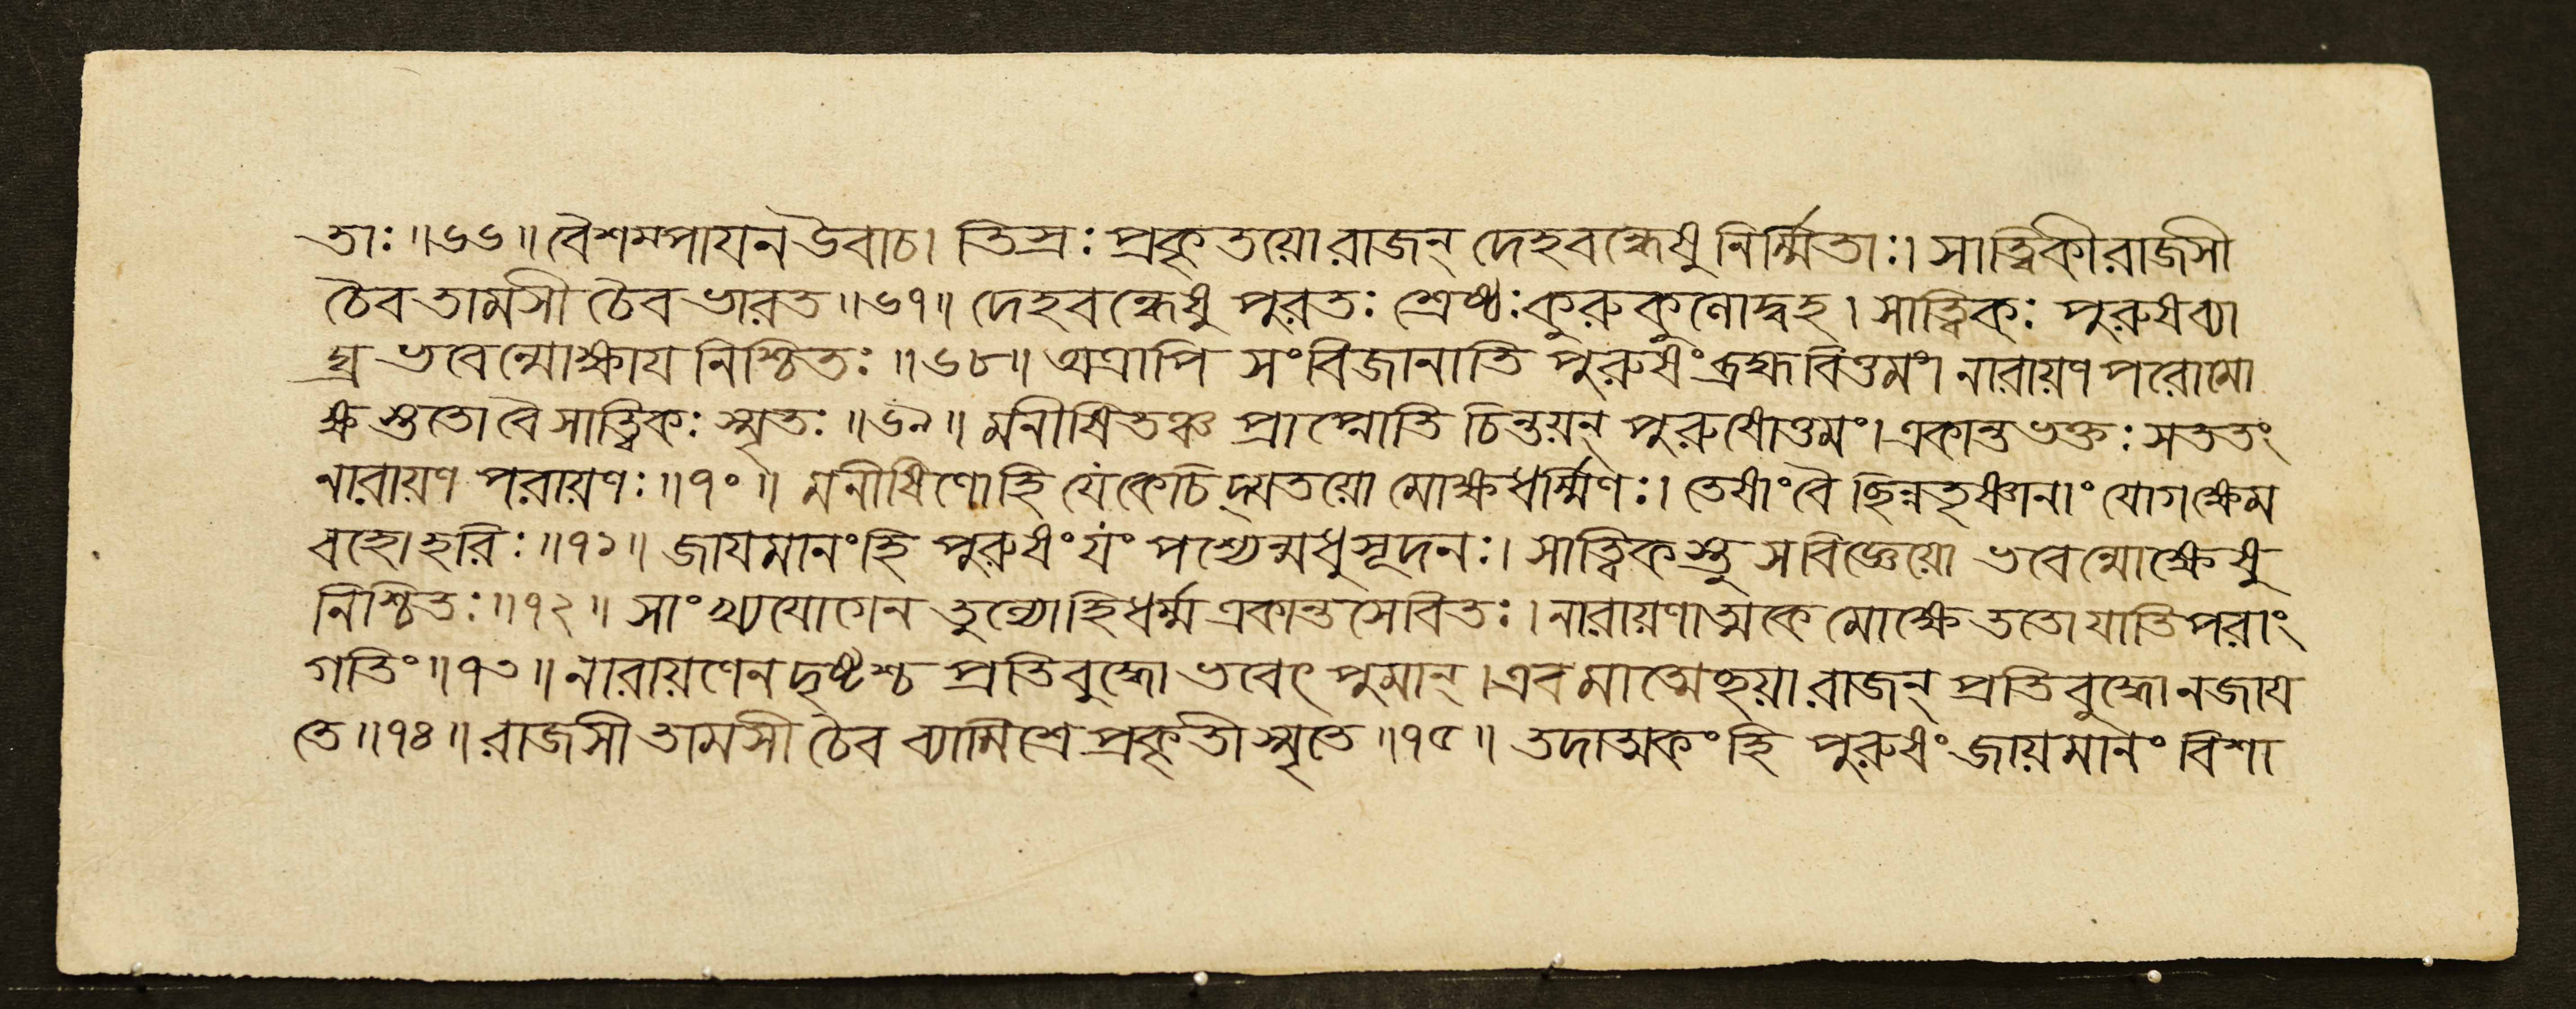 তাঃ ॥৬৬॥ বৈশম্পায়ন উবাচ। তিস্রঃ প্রকৃতয়ো রাজন্ দেহবন্ধেষু নির্ম্মিতাঃ। সাত্ত্বিকী রাজসী
চৈব তামসী চৈব ভারত ॥৬৭॥ দেহবন্ধেষু পুরতঃ শ্রেষ্ঠঃ কুরুকুলোদ্বহ। সাত্ত্বিকঃ পুরুষব্যা
ঘ্র ভবেন্মোক্ষায নিশ্চিতঃ ॥৬৮॥ অত্রাপি সংবিজানাতি পুরুষং ব্রহ্মবিত্তমং। নারায়ণ পরোমো
ক্ষস্ততো বৈ সাত্ত্বিকঃ স্মৃতঃ ॥৬৯॥ মনীষিতঞ্চ প্রাপ্নোতি চিন্তয়ন্ পুরুষোত্তমং। একান্তভক্তঃ সততং
নারায়ণ পরায়ণঃ ॥৭০॥ মনীষিণোহি যেকেচিদ্যতয়ো মোক্ষধর্ম্মিণঃ। তেষাংবৈ ছিন্নতৃষ্ণানাং যোগক্ষেম
বহোহরিঃ ॥৭১॥ জাযমানংহি পুরুষং যং পশ্যেন্মধুসূদনঃ। সাত্ত্বিকস্তু সবিজ্ঞেয়ো ভবেন্মোক্ষেষু
নিশ্চিতঃ ॥৭২॥ সাংখ্যযোগেন তুল্যোহিধর্ম্ম একান্তসেবিতঃ। নারায়ণাত্মকে মোক্ষে ততো যাতি পরাং
গতিং ॥৭৩॥ নারায়ণেন দৃষ্টশ্চ প্রতিবুদ্ধো ভবেৎ পুমান্। এবমাত্মেছয়া রাজন্ প্রতিবুদ্ধো নজায
তে ॥৭৪॥ রাজসী তামসী চৈব ব্যামিশ্রে প্রকৃতী স্মৃতে ॥৭৫॥ তদাত্মকংহি পুরুষং জায়মানং বিশা